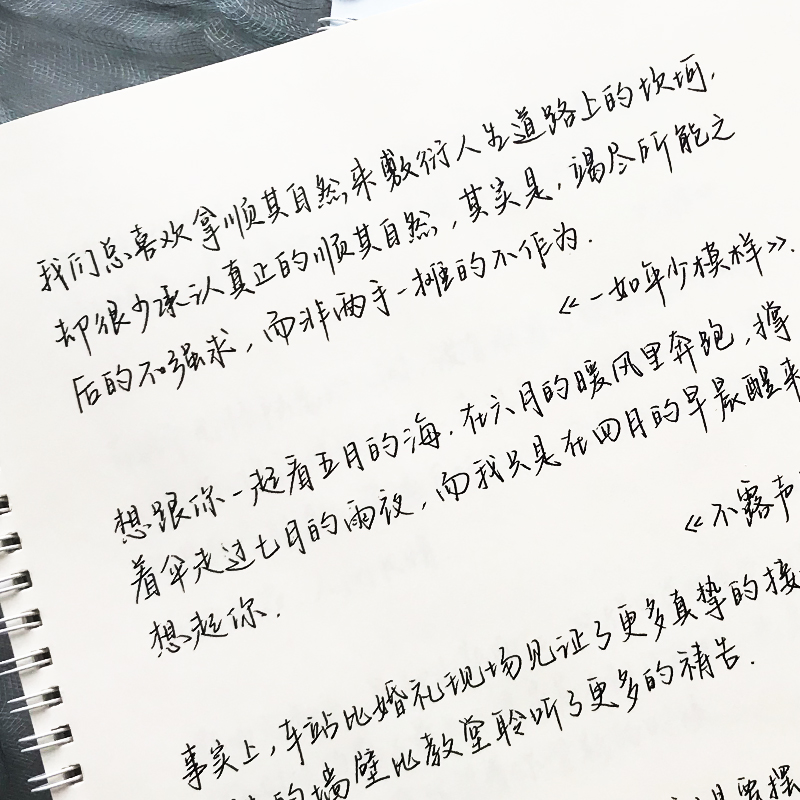 我们总喜欢拿顺其自然来敷衍人生道路上的坎坷,
却很少承认真正的顺其自然,其实是,竭尽所能之
后的不强求,而非两手一摊的不作为.
《一如年少模样》.
想跟你一起看五月的海.在六月的暖风里奔跑,撑
着伞走过七月的雨夜,而我只是在四月的早晨醒来
想起你.
《不露声
事实上,车站比婚礼现场见证了更多真挚的接
的墙壁比教堂聆听了更多的祷告.
要摆